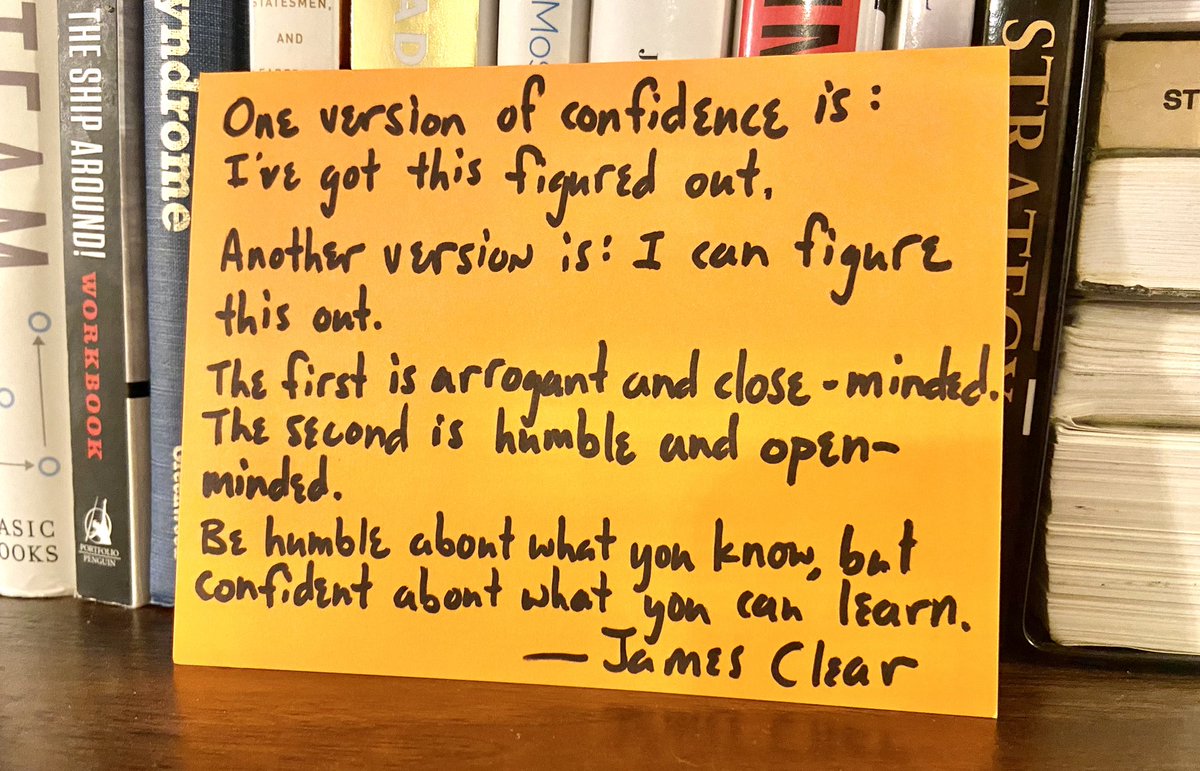 STATESMEN,
AND
TEAM
THE SHIP AROUND!
WORKBOOK
PORTFOLIO
PENGUIN
STRATEGY
ST
One version of confidence is:
I've got this figured out.
Another version is: I can figure
this out.
The first is arrogant and close-minded.
The second is humble and open-
minded.
Be humble about what you know, but
confident about what you can learn.
— James Clear